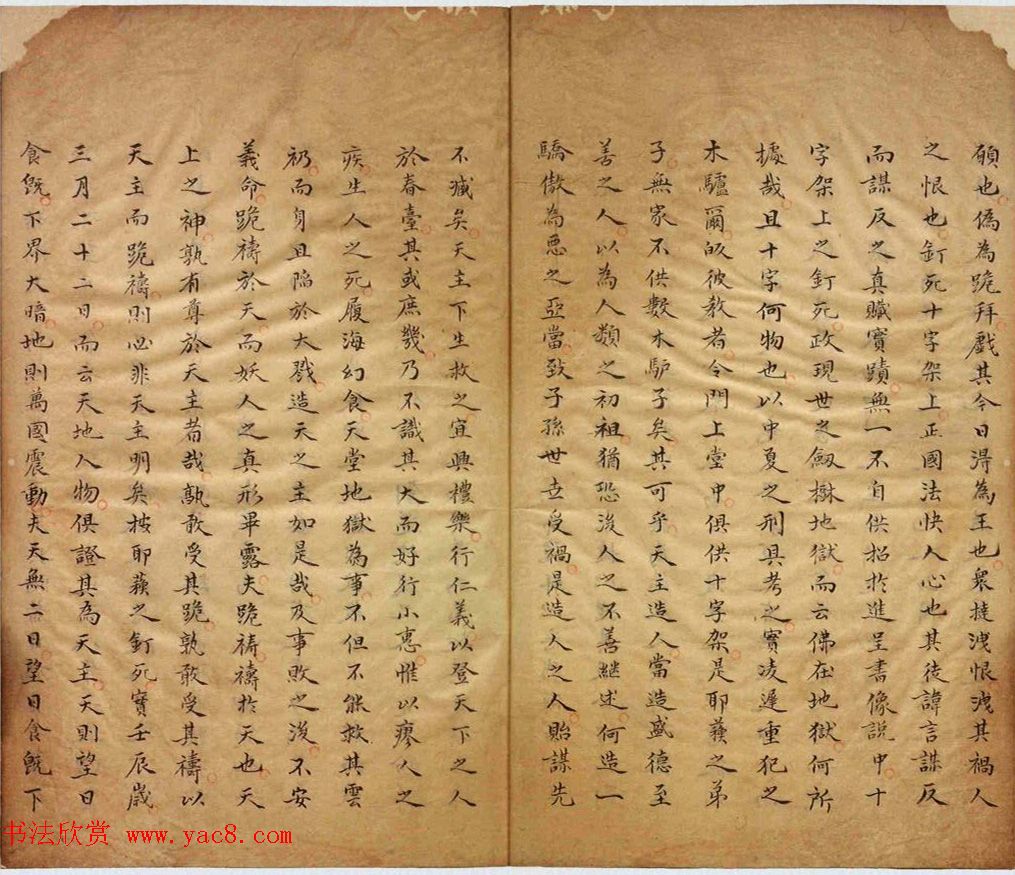 願也偽為跪拜戲其今日淂為王也衆撻洩恨洩其禍人
之恨也釘死十字架上正國法快人心也其徒諱言謀反
而謀反之真贜實蹟無一不自供招扵進呈書像說中十
字架上之釘死政現世之劔樹地獄而云佛在地獄何所
據哉且十字何物也以中夏之刑具考之實凌遲重犯之
木驢爾皈彼教者令門上堂中俱供十字架是耶蘓之弟
子無家不供數木馿子矣其可乎天主造人當造盛德至
善之人以為人類之初祖猶恐後人之不善継述何造一
驕傲為惡之亞當致子孫世世受禍是造人之人貽謀先
不臧矣天主下生救之宜興禮樂行仁義以登天下之人
於春臺其或庶幾乃不識其大而好行小惠惟以瘳人之
疾生人之死履海幻食天堂地獄為事不但不能救其雲
礽而身且陷於大戮造天之主如是哉及事敗之後不安
義命跪禱於天而妖人之真形畢露夫跪祷禱扵天也天
上之神孰有尊於天主者哉孰敢受其跪孰敢受其禱以
天主而跪禱則必非天主明矣按耶蘓之釘死實壬辰歲
三月二十二日而云天地人物俱證其為天主天則望日
食旣下界大暗地則萬國震動夫天無二日望日食旣下
书法欣赏 www.yac8.com